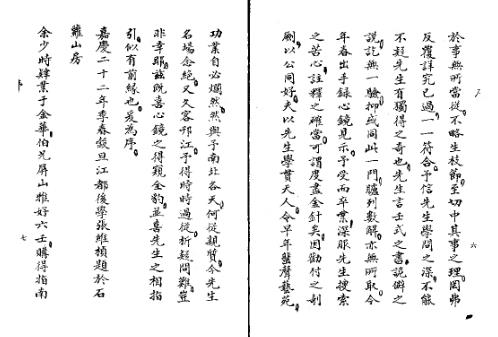 於事無所當從不略生枝節至切中其事之理因弗
反覆詳究已過一一符合予信先生學問之深不能
不疑先生有獨得之奇也先生言壬式之書詭僻之
說訖無一驗抑或同此一門臚列數解亦無所取今
年春出手錄心鏡見示予受而卒業深服先生搜索
之苦心註釋之確當可謂度盡金針矣因勸付之剞
劂以公同好夫以先生學貫天人今早年蜚聲藝苑
功業自必爛然與予南北各天何從親賢今先生
名場念絕又久客邗江予得時時過從析疑問難豈
非幸耶茲既喜心鏡之得窺全豹並喜先生之相指
引似有前緣也爰為序
嘉慶二十二年季春穀旦江都後學張維楨題於石
蘿山房
余少時肄業于金華伯兄屏山雅好六壬購得指南
六
七